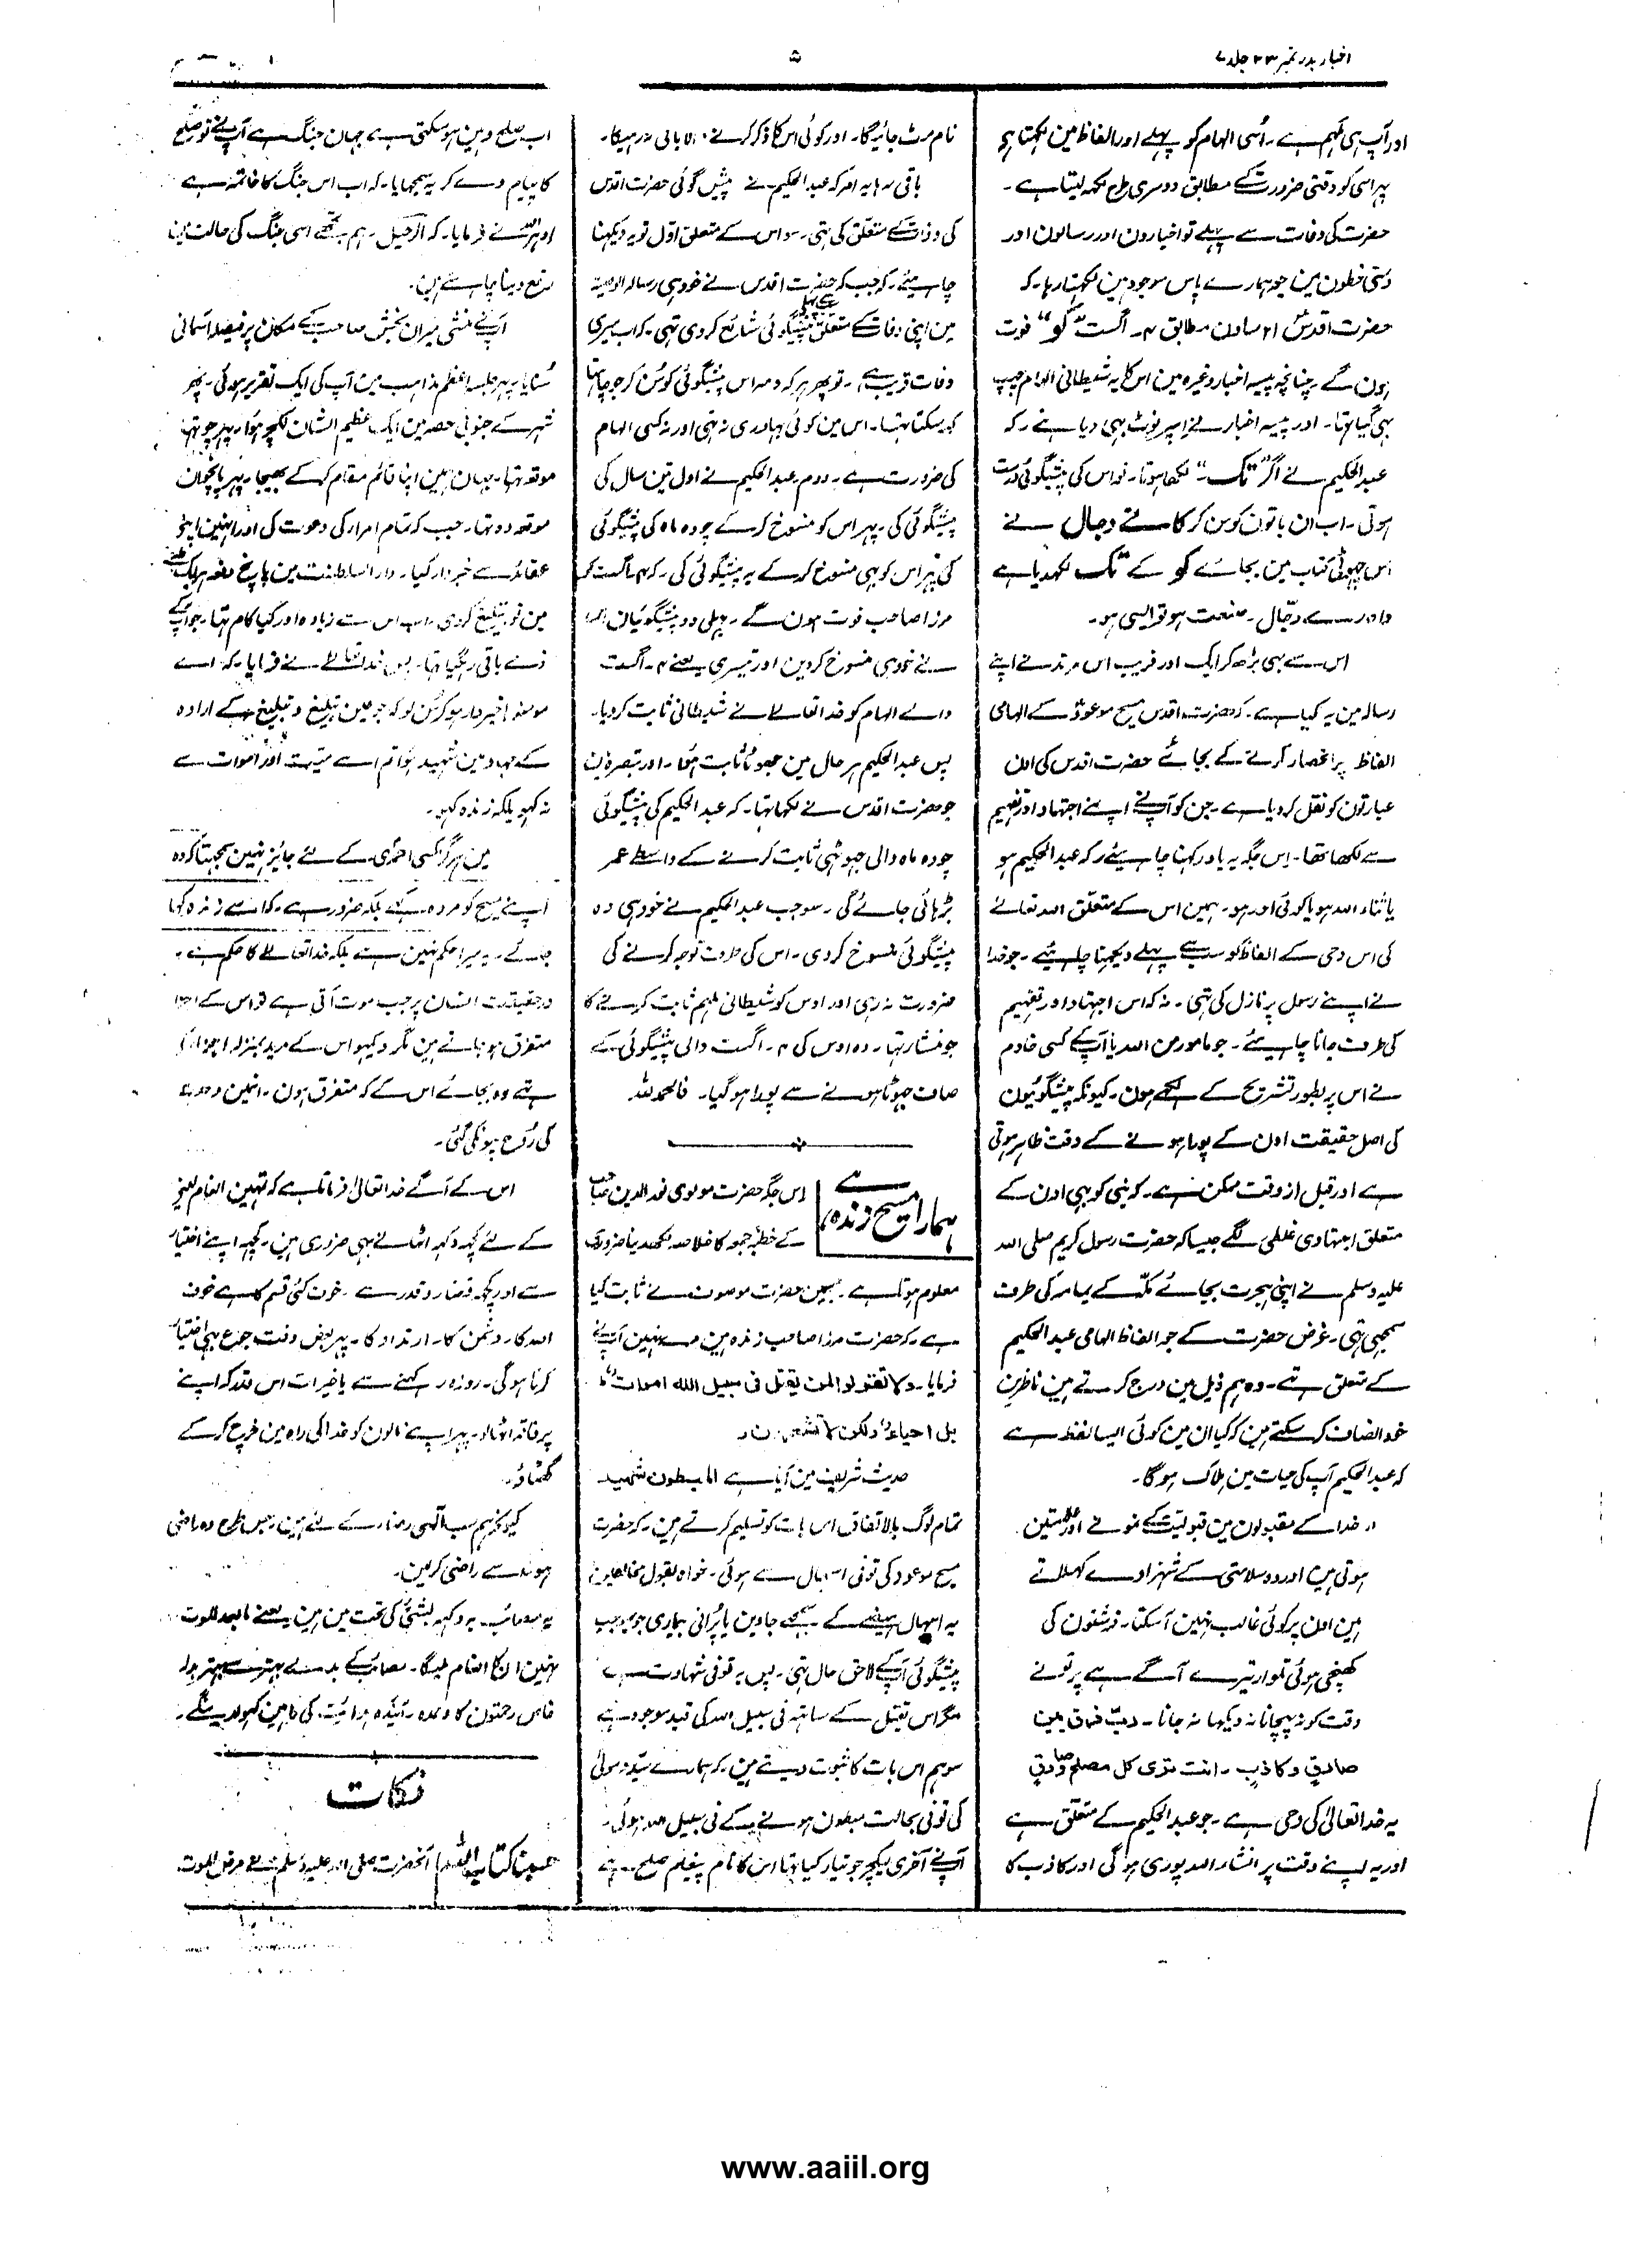 اخبار بدر نمبر ۲۳ جلد ۷
۵
اور آپ ہی ملہم ہے ۔ اُسی الہام کو پہلے اور الفاظ مین لکہتا ہے
پہر اسی کو وقتی ضرورت کے مطابق دوسری طرح لکہہ لیتا ہے ۔
حضرت کی وفات سے پہلے تو اخبارون اور رسالون اور
دستی خطون مین جو ہمارے پاس موجود ہین لکہتا رہا ۔ کہ
حضرت اقدس ۲۱ ساون مطابق ۴ ۔ اگست "کو" فوت
ہون گے ۔ چنانچہ پیسہ اخبار وغیرہ مین اس کا یہ شیطانی الہام چہپ
بہی گیا تہا ۔ اور پیسہ اخبار نے اسپر نوٹ بہی دیا ہے ۔ کہ
عبد الحکیم نے اگر "تک" لکہا ہوتا ۔ تو اس کی پیشگوئی درست
ہوتی ۔ اب ان باتون کو سن کر کانے دجال نے
اس جہوٹی کتاب مین بجائے کو کے تک لکہدیا ہے
واہ رے دجّال ۔ صنعت ہو تو ایسی ہو ۔
اس سے بہی بڑھ کر ایک اور فریب اس مرتد نے اپنے
رسالہ مین یہ کیا ہے ۔ کہ حضرت اقدس مسیح موعودؑ کے الہامی
الفاظ پر انحصار کرنے کے بجائے حضرت اقدس کی اون
عبارتون کو نقل کر دیا ہے ۔ جن کو آپنے اپنے اجتہاد اور تفہیم
سے لکھا تھا ۔ اس جگہ یہ یاد رکہنا چاہیئے ۔ کہ عبد الحکیم ہو
یا ثناء اللہ ہو یا کوئی اور ہو ۔ ہمین اس کے متعلق اللہ تعالےٰ
کی اس وحی کے الفاظ کو سب سے پہلے دیکہنا چاہیئے ۔ جو خدا
نے اپنے رسول پر نازل کی تہی ۔ نہ کہ اس اجتہاد اور تفہیم
کی طرف جانا چاہیئے ۔ جو مامور من اللہ یا آپکے کسی خادم
نے اس پر بطور تشریح کے لکہے ہون ۔ کیونکہ پیشگوئیون
کی اصل حقیقت اون کے پورا ہونے کے وقت ظاہر ہوتی
ہے اور قبل از وقت ممکن ہے ۔ کہ نبی کو بہی اون کے
متعلق اجتہادی غلطی لگے جیسا کہ حضرت رسول کریم صلی اللہ
علیہ وسلم نے اپنی ہجرت بجائے مکّہ کے یمامہ کی طرف
سمجہی تہی ۔ غرض حضرت کے جو الفاظ الہامی عبد الحکیم
کے متعلق تہے ۔ وہ ہم ذیل مین درج کرتے ہین ناظرین
خود انصاف کر سکتے ہین کہ کیا ان مین کوئی ایسا لفظ ہے
کہ عبد الحکیم آپ کی حیات مین ہلاک ہوگا ۔
خدا کے مقبولون مین قبولیت کے نمونے اور علامتین
ہوتی ہین اور وہ سلامتی کے شہزادے کہلاتے
ہین اون پر کوئی غالب نہین آ سکتا ۔ فرشتون کی
کھینچی ہوئی تلوار تیرے آگے ہے پر تونے
وقت کو نہ پہچانا نہ دیکہا نہ جانا ۔ ربّ فرق بین
صادقٍ و کاذبٍ ۔ انت تری کل مصلح و صادقٍ
یہ خدا تعالیٰ کی وحی ہے ۔ جو عبد الحکیم کے متعلق ہے
اور یہ اپنے وقت پر انشاء اللہ پوری ہوگی اور کاذب کا
نام مٹ جائیگا ۔ اور کوئی اس کا ذکر کرنے والا باقی نہ رہیگا ۔
باقی رہا یہ امر کہ عبد الحکیم نے پیش گوئی حضرت اقدس
کی وفات کے متعلق کی تہی ۔ سو اس کے متعلق اوّل تو یہ دیکہنا
چاہیئے ۔ کہ جب کہ حضرت اقدس نے خود ہی رسالہ الوصیۃ
مین اپنی وفات کے متعلق پیشگوئی شائع کر دی تہی ۔ کہ اب میری
وفات قریب ہے ۔ تو پھر ہر کہ و مہ اس پیشگوئی کو سُن کر جو چاہتا
کہ سکتا تہا ۔ اس مین کوئی بہادری نہ تہی اور نہ کسی الہام
کی ضرورت ہے ۔ دوم عبد الحکیم نے اول تین سال کی
پیشگوئی کی ۔ پہر اس کو منسوخ کرکے چودہ ماہ کی پیشگوئی
کی پہر اس کو بہی منسوخ کرکے یہ پیشگوئی کی ۔ کہ ۴ اگست کو
مرزا صاحب فوت ہون گے ۔ پہلی دو پیشگوئیان
نے خود ہی منسوخ کر دین اور تیسری یعنے ۴ ۔ اگست
والے الہام کو خدا تعالےٰ نے شیطانی ثابت کر دیا ۔
پس عبد الحکیم ہر حال مین جھوٹا ثابت ہوا ۔ اور تبصرہ مین
جو حضرت اقدس نے لکہا تہا ۔ کہ عبد الحکیم کی پیشگوئی
چودہ ماہ والی جہوٹہی ثابت کرنے کے واسطے عمر
بڑہائی جائے گی ۔ سو جب عبد الحکیم نے خود ہی وہ
پیشگوئی منسوخ کر دی ۔ اس کی طرف توجہ کرنے کی
ضرورت نہ رہی اور اوس کو شیطانی ملہم ثابت کرنے کا
جو منشاء تہا ۔ وہ اوس کی ۴ ۔ اگست والی پیشگوئی کے
صاف جہوٹا ہونے سے پورا ہو گیا ۔ فالحمد للہ
ہمارا مسیح زندہ ہے
اس جگہ حضرت مولوی نور الدین صاحب
کے خطبہ جمعہ کا خلاصہ لکھدینا ضروری
معلوم ہوتا ہے ۔ جسمین حضرت موصوف نے ثابت کیا
ہے ۔ کہ حضرت مرزا صاحب زندہ ہین مرے نہین آپنے
فرمایا ۔ ولا تقولوا لمن یقتل فی سبیل اللہ اموات ط
بل احیاء ولکن لا تشعرون ۔
حدیث شریف مین آیا ہے المبطون شہید
تمام لوگ بالاتفاق اس بات کو تسلیم کرتے ہین ۔ کہ حضرت
مسیح موعود کی توفی اسہال سے ہوئی ۔ خواہ بقول مخالفین
یہ اسہال ہیضے کے سمجہے جاوین یا پُرانی بیماری جو بموجب
پیشگوئی آپکے لاحق حال تہی ۔ پس یہ توفی شہادت ہے
مگر اس تقتیل کے ساتہہ فی سبیل اللہ کی قید موجود ہے
سو ہم اس بات کا ثبوت دیتے ہین ۔ کہ ہمارے سیّد و مولیٰ
کی توفی بحالت مبطون ہونے کے فی سبیل اللہ ہوئی ۔
آپنے آخری لیکچر جو تیار کیا تہا اس کا نام پیغام صلح ہے
اب صلح وہین ہو سکتی ہے جہان جنگ ہے آپ نے تو صلح
کا پیام دے کر یہ سمجہایا ۔ کہ اب اس جنگ کا خاتمہ ہے
اور اللہ نے فرمایا ۔ کہ الرحیل ۔ ہم تجھے اسی جنگ کی حالت مین
رفع دینا چاہتے ہین ۔
آپنے منشی میران بخش صاحب کے مکان پر فیصلہ آسمانی
سُنایا ۔ پہر جلسہ اعظم مذاہب مین آپ کی ایک تقریر ہوئی ۔ پھر
شہر کے جنوبی حصہ مین ایک عظیم الشان لکچر ہوا ۔ پہر چوتہا
موقعہ تہا ۔ جہان ہمین اپنا قائم مقام کرکے بھیجا ۔ پہر پانچوان
موقعہ وہ تہا ۔ جب کہ تمام امراء کی دعوت کی اور انہین اپنے
عقائد سے خبردار کیا ۔ دار السلطنت مین پانچ دفعہ ہر ایک طبقے
مین خود تبلیغ کر دی ۔ اب اس سے زیادہ اور کیا کام تہا ۔ جو آپکے
ذمے باقی رہگیا تہا ۔ پس خدا تعالےٰ نے فرمایا ۔ کہ اے
مومنو ! خبردار ہو کر سُن لو کہ جو مین تبلیغ و تبلیغ کے ارادہ
کے جہاد مین شہید ہوا تم اسے میّت اور اموات سے
نہ کہو بلکہ زندہ کہو ۔
مین ہرگز کسی احمدی کے لئے جایز نہین سمجہتا کہ وہ
اپنے مسیح کو مردہ کہے بلکہ ضرور ہے ۔ کہ اسے زندہ کہا
جائے ۔ یہ میرا حکم نہین ہے بلکہ خدا تعالےٰ کا حکم ہے ۔
درحقیقت انسان پر جب موت آتی ہے تو اس کے اجزا
متفرق ہو جاتے ہین مگر دیکہو اس کے مرید بمنزلہ اجزاء
تہے وہ بجائے اس کے کہ متفرق ہون ۔ انہین وحدت
کی رُوح پہونکی گئی ۔
اس کے آگے خدا تعالیٰ فرماتا ہے کہ تمہین انعام لینے
کے لئے کچہہ دکہہ اٹہانے بہی ضروری ہین ۔ کچہہ اپنے اختیار
سے اور کچھ قضاء و قدر سے ۔ خوف کئی قسم کا ہے خوف
اللہ کا ۔ دشمن کا ۔ ارتداد کا ۔ پہر بعض وقت جوع بہی اختیار
کرنا ہوگی ۔ روزہ رکہنے سے یا خیرات اس قدر کہ اپنے
پر فاقہ اٹہاؤ ۔ پہر اپنے مالون کو خدا کی راہ مین خرچ کرکے
گھٹاؤ ۔
کیونکہ ہم سب آلہی رضاء کے لئے ہین ۔ جس طرح وہ راضی
ہو اسے راضی کر لین ۔
یہ مصائب یہ دکہہ بشئ کی تحت مین ہین یعنے ما بعد الموت
انہین ان کا انعام ملیگا ۔ مصائب کے بدلے بہتر سے بہتر بدلہ
خاص رحمتون کا وعدہ ۔ آیندہ ہدایت کی راہین کہولدینگے ۔
نکات
حسبنا کتاب اللہ
آنحضرت صلی اللہ علیہ وسلم نے مرض الموت
www.aaiil.org